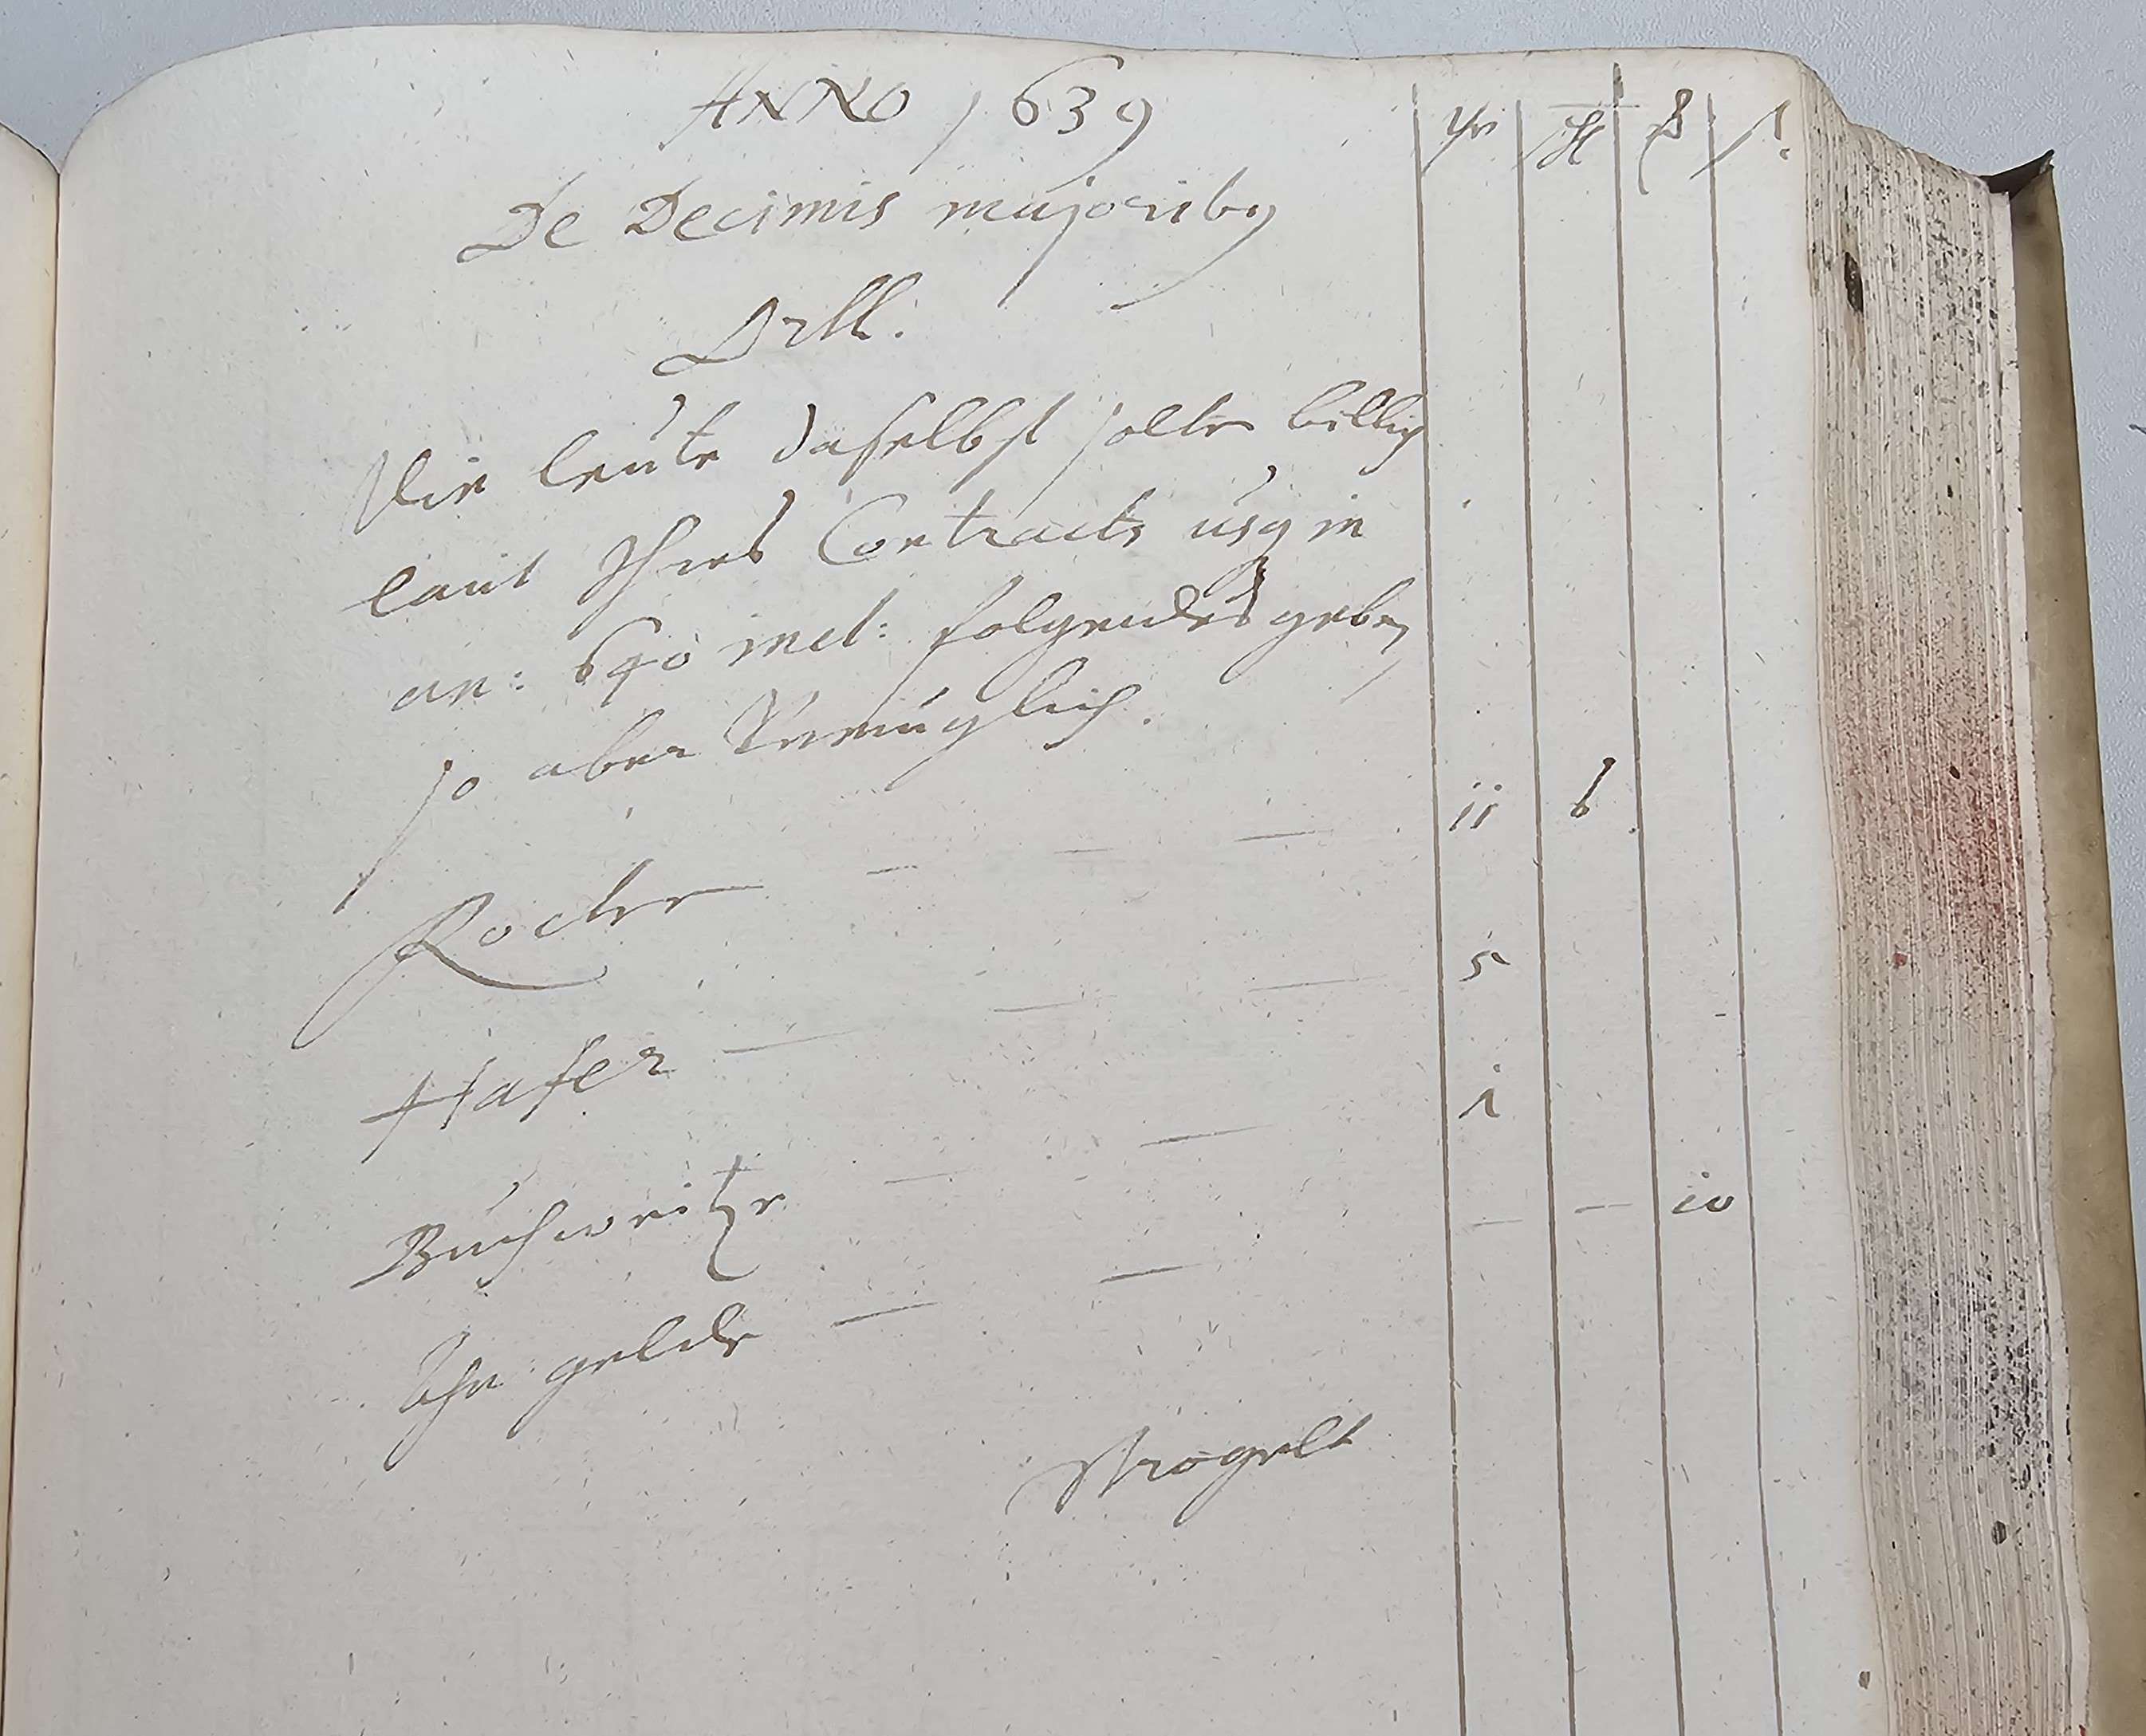 ANNO 1639
De Decimis majoribq
Orll.
Die leute daselbst solten billig
laut Ihres Contracts usq in
an: 640 incl: folgendes geben
so aber Unmüglich.
Rocken — — — — ii 6
Hafer — — — 5
Buchweitzen — — i
Ahn gelde — — — — io